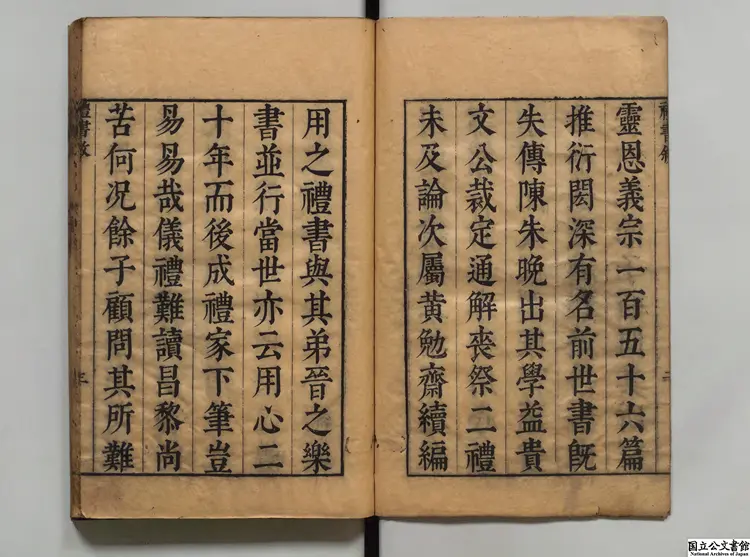 靈恩義宗一百五十六篇
推衍閎深有名前世書既
失傳陳朱晚出其學益貴
文公裁定通解喪祭二禮
未及論次屬黄勉齋續編
用之禮書與其弟晉之樂
書並行當世亦云用心二
十年而後成禮家下筆豈
易易哉儀禮難讀昌黎尚
苦何况餘子顧問其所難
禮書敘
三
二
国立公文書館
National Archives of Japan